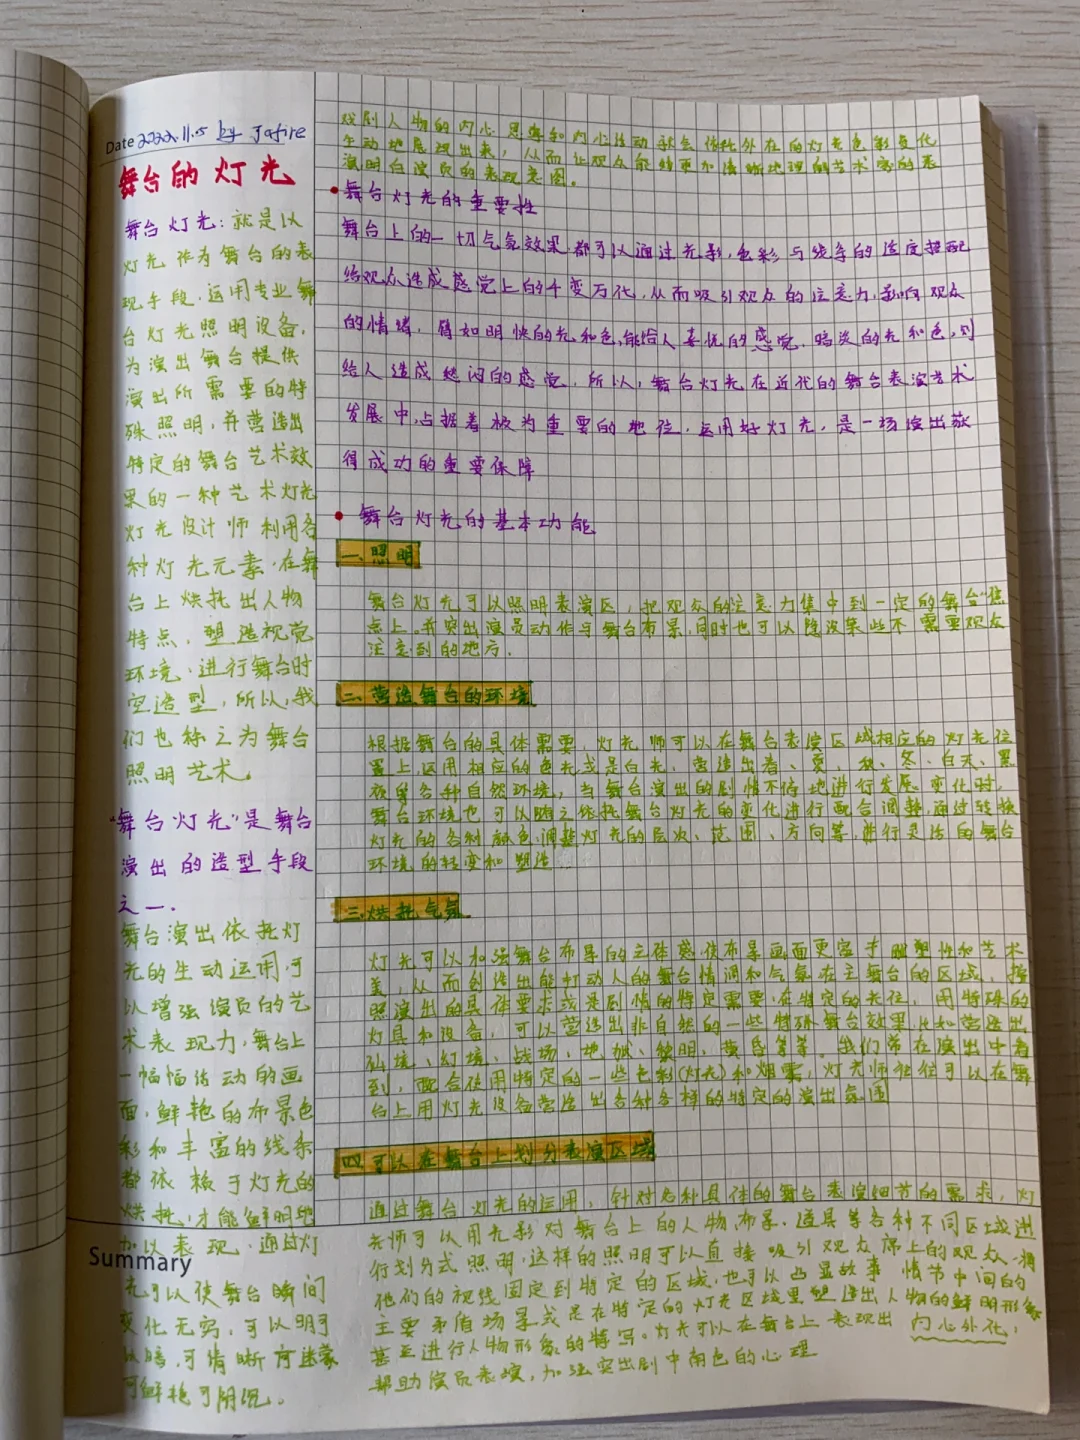 Date 2022.11.5 by Jafire
舞台的灯光
舞台灯光：就是以
灯光作为舞台的表
现手段，运用专业舞
台灯光照明设备，
为演出舞台提供
演出所需要的特
殊照明，并营造出
特定的舞台艺术效
果的一种艺术灯光
灯光设计师利用各
种灯光元素，在舞
台上烘托出人物
特点，塑造视觉
环境，进行舞台时
空造型，所以，我
们也称之为舞台
照明艺术。
"舞台灯光"是舞台
演出的造型手段
之一.
舞台演出依托灯
光的生动运用，可
以增强演员的艺
术表现力，舞台上
一幅幅活动的画
面，鲜艳的布景色
彩和丰富的线条
都依赖于灯光的
烘托，才能鲜明地
加以表现．通过灯
Summary
光可以使舞台瞬间
变化无穷，可以明可
以暗，可清晰可迷蒙
可鲜艳可阴沉．
戏剧人物的内心思想和内心活动都会依托外在的灯光色彩变化
生动地展现出来，从而让观众能够更加清晰地理的艺术家的表
演明白演员的表现意图。
舞台灯光的重要性
舞台上的一切气氛效果，都可以通过光影，色彩与线条的适度搭配
给观众造成感觉上的千变万化，从而吸引观众的注意力，影响观众
的情绪．譬如明快的光和色，能给人喜悦的感觉．暗淡的光和色，则
给人造成愁闷的感觉．所以，舞台灯光在近代的舞台表演艺术
发展中，占据着极为重要的地位．运用好灯光，是一场演出获
得成功的重要保障
舞台灯光的基本功能
一．照明
舞台灯光可以照明表演区，把观众的注意力集中到一定的舞台焦
点上．并突出演员动作与舞台布景，同时也可以隐没某些不需要观众
注意到的地方．
二．营造舞台的环境
根据舞台的具体需要，灯光师可以在舞台表演区域相应的灯光位
置上，运用相应的色光或是白光，营造出春、夏、秋、冬、白天、黑
夜等各种自然环境，当舞台演出的剧情不停地进行发展变化时，
舞台环境也可以随之依托舞台灯光的变化进行配合调整，通过转换
灯光的各种颜色，调整灯光的层次、范围、方向等，进行灵活的舞台
环境的转变和塑造
三．烘托气氛
灯光可以加强舞台布景的立体感，使布景画面更富于雕塑性和艺术
美，从而创造出能打动人的舞台情调和气氛在主舞台的区域，按
照演出的具体要求或是剧情的特定需要，在特定的光位，用特殊的
灯具和设备，可以营造出非自然的一些特殊舞台效果，比如营造出
仙境、幻境、战场、地狱、黎明、黄昏等等。我们常在演出中看
到，配合使用特定的一些色彩(灯光)和烟雾，灯光师往往可以在舞
台上用灯光设备营造出各种各样的特定的演出氛围
四可以在舞台上划分表演区域
通过舞台灯光的运用，针对各种具体的舞台表演细节的需求，灯
光师可以用光影对舞台上的人物，布景，道具等各种不同区域进
行划分式照明，这样的照明可以直接吸引观众席上的观众，将
他们的视线固定到特定的区域，也可以凸显故事情节中间的
主要矛盾场景或是在特定的灯光区域里塑造出人物的鲜明形象
甚至进行人物形象的特写。灯光可以在舞台上表现出内心外化，
帮助演员表演，加强突出剧中角色的心理